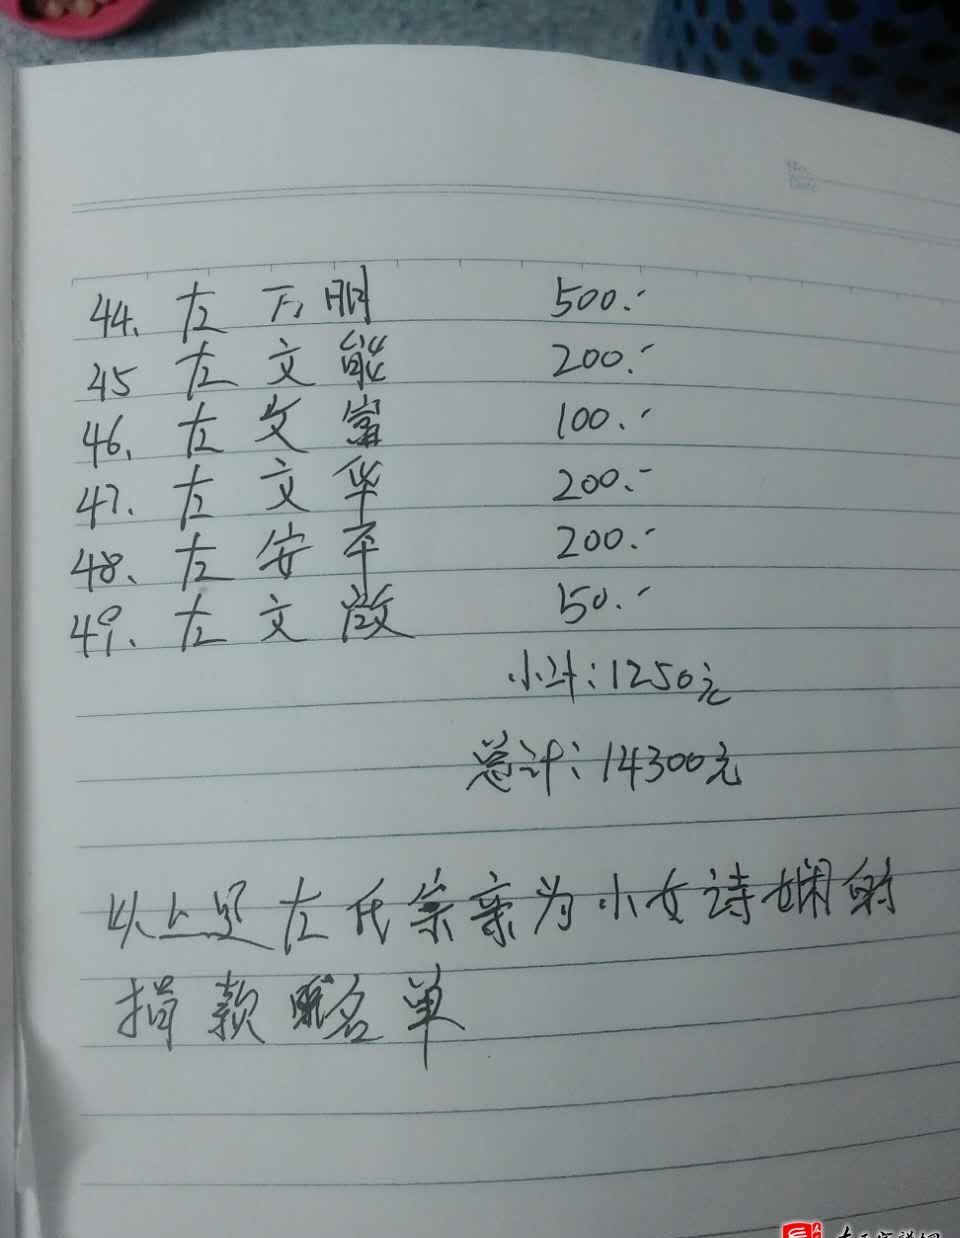 44、左万明 500.-
45 左文能 200.-
46、左文富 100.-
47、左文华 200.-
48、左安平 200.-
49、左文啟 50.-
小计:1250元
总计:14300元
以上是左氏宗亲为小女诗娴的
捐款名单